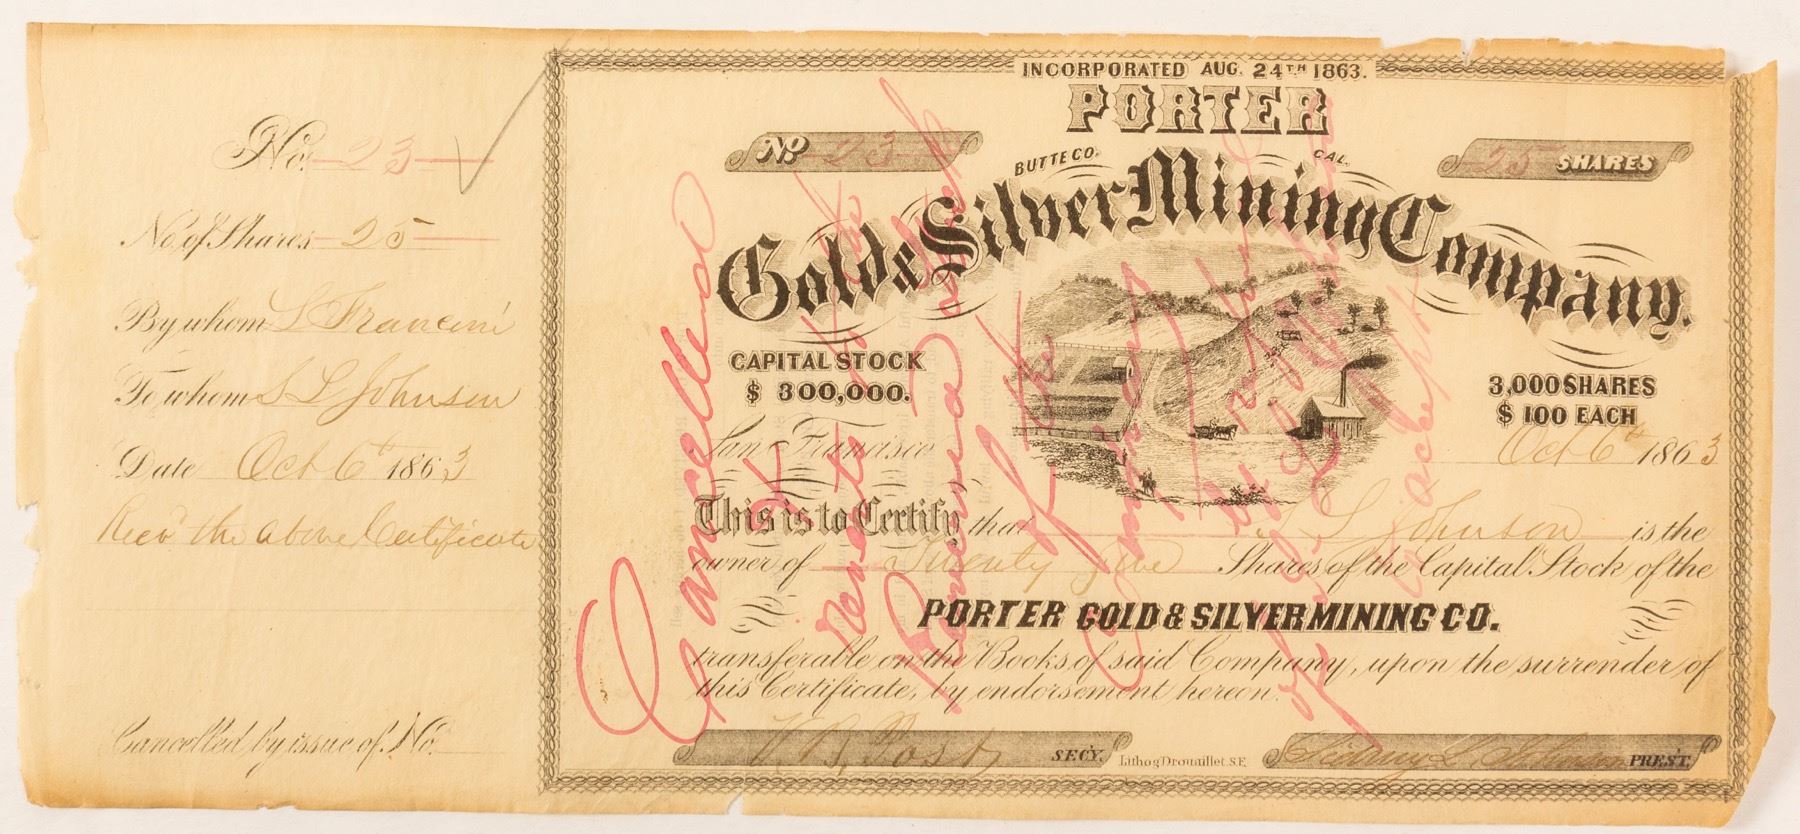 No. 23
No. of Shares 25
By whom L Francini
To whom S L Johnson
Date Oct 6th 1863
Recd the above Certificate
Cancelled by issue of No.
INCORPORATED AUG. 24TH 1863.
PORTER
No 23
BUTTE CO. CAL.
25 SHARES
Gold & Silver Mining Company.
CAPITAL STOCK
$ 300,000.
3,000 SHARES
$ 100 EACH
San Francisco Oct 6th 1863
This is to Certify that S L Johnson is the
owner of Twenty five Shares of the Capital Stock of the
PORTER GOLD & SILVER MINING CO.
transferable on the Books of said Company, upon the surrender of
this Certificate, by endorsement hereon.
SECY.
Lithog Drouaillet. S.F.
Sidney L Johnson PREST.
Cancelled
of the
Company